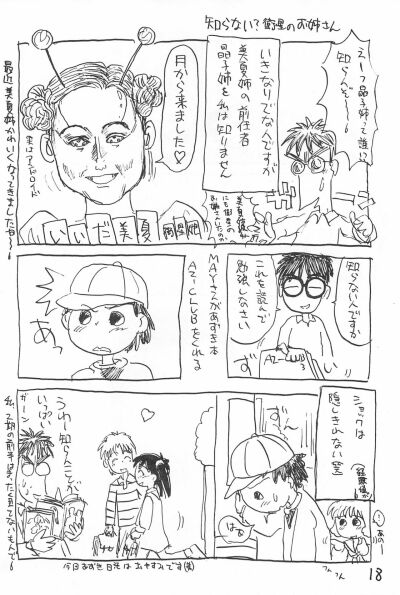 知らない?衛星のお姉さん
えーっ晶子姉って誰!?
知らんぞ〜
いきなりでなんですが
美夏姉の前任者
晶子姉を私は知りません
美夏姉以外
にも衛星の
お姉さんいたのか
月から来ました♡
実はアンドロイド
いいだ美夏
衛星姉
最近美夏姉かわいくなってきましたね〜
知らない人ですか
これを読んで
勉強しなさい
AZ-CLUB
3
ず
MAYさんがあずき本
AZ-CLUBをくれる
あっ
ショックは
隠しきれない(笑)
ずーん
はぁ
あの〜
つんつん
うわー知らんことが
いっぱい
ガーン
私、2期の前半はまったく見てないもんで
今日あずき日光はおやすみです(笑)
18